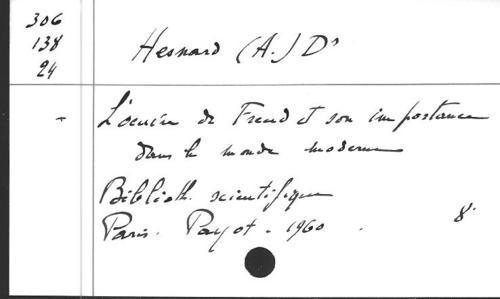 306
138
24
Hesnard (A.) Dr
- L'oeuvre de Freud et son importance
dans le monde moderne
Biblioth. scientifique
Paris. Payot. 1960. 8°